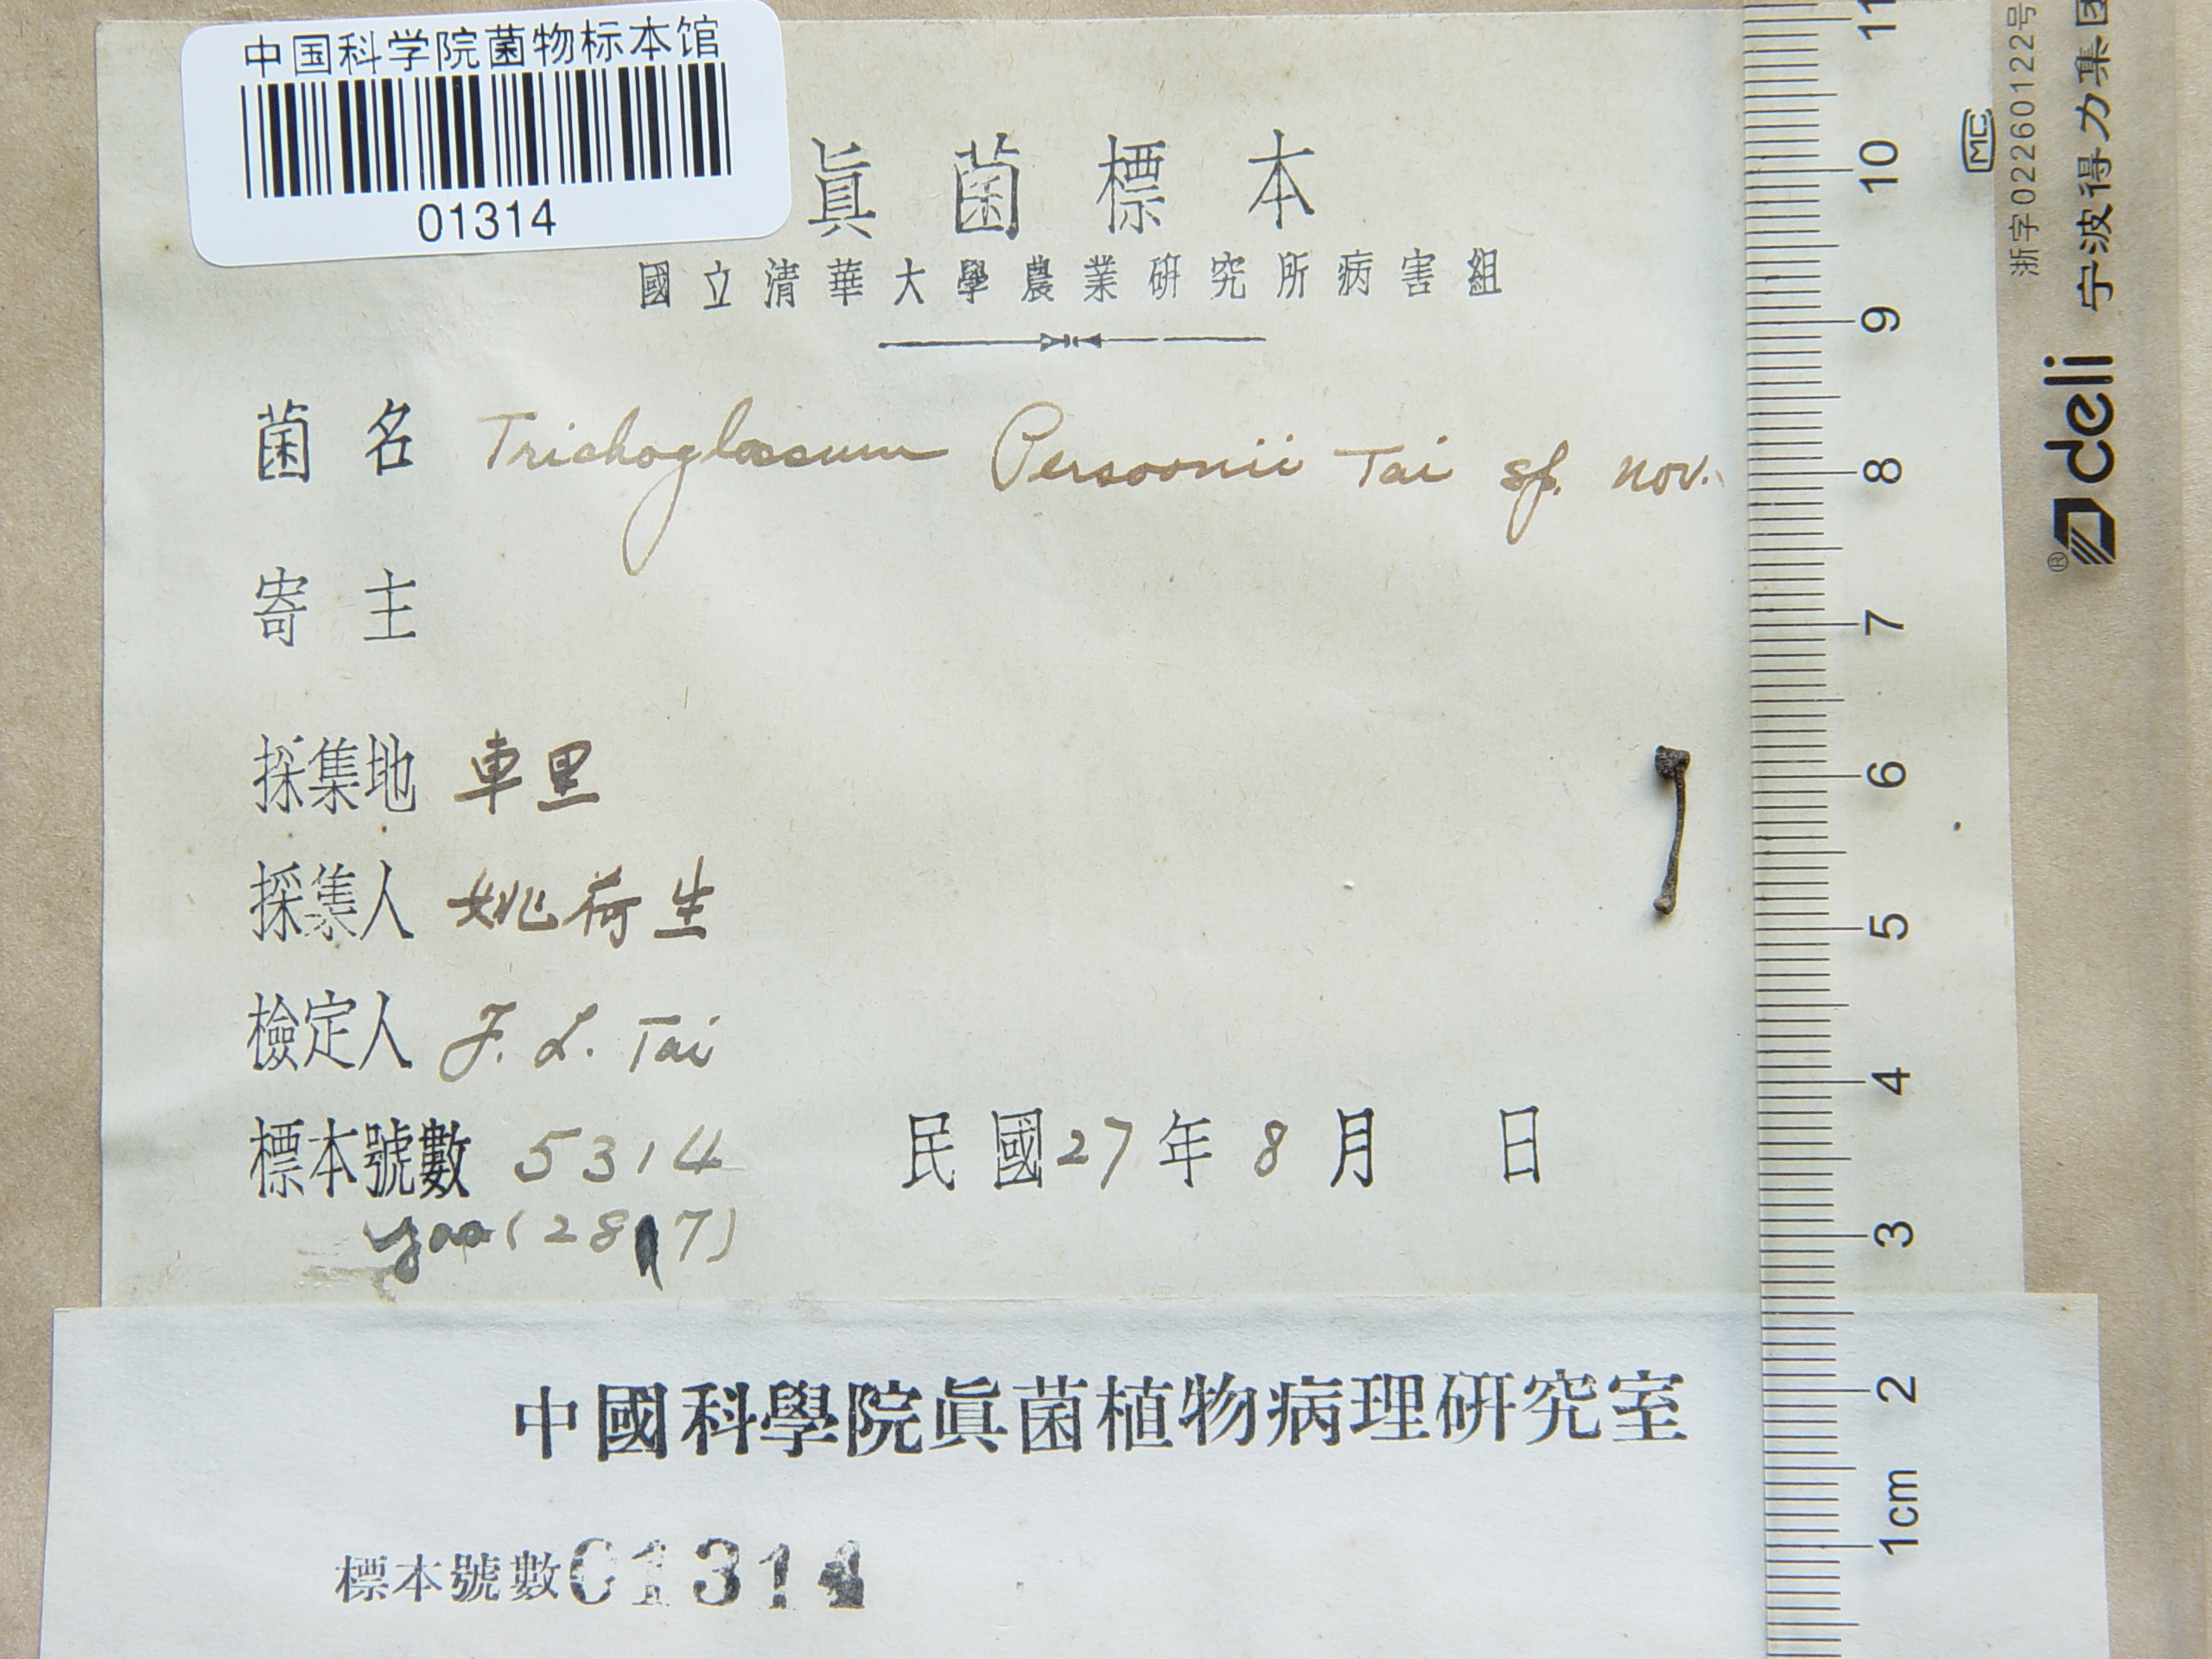 中国科学院菌物标本馆
01314
眞菌標本
國立清華大學農業研究所病害組
菌名 Trichoglossum Persoonii Tai sp. nov.
寄主
採集地 車里
採集人 姚荷生
檢定人 F. L. Tai
標本號數 5314 民國27年8月 日
Yao (28 7)
中國科學院眞菌植物病理研究室
標本號數01314
11
10
9
8
7
6
5
4
3
2
1cm
MC
浙字02260122号
deli 宁波得力集团
®